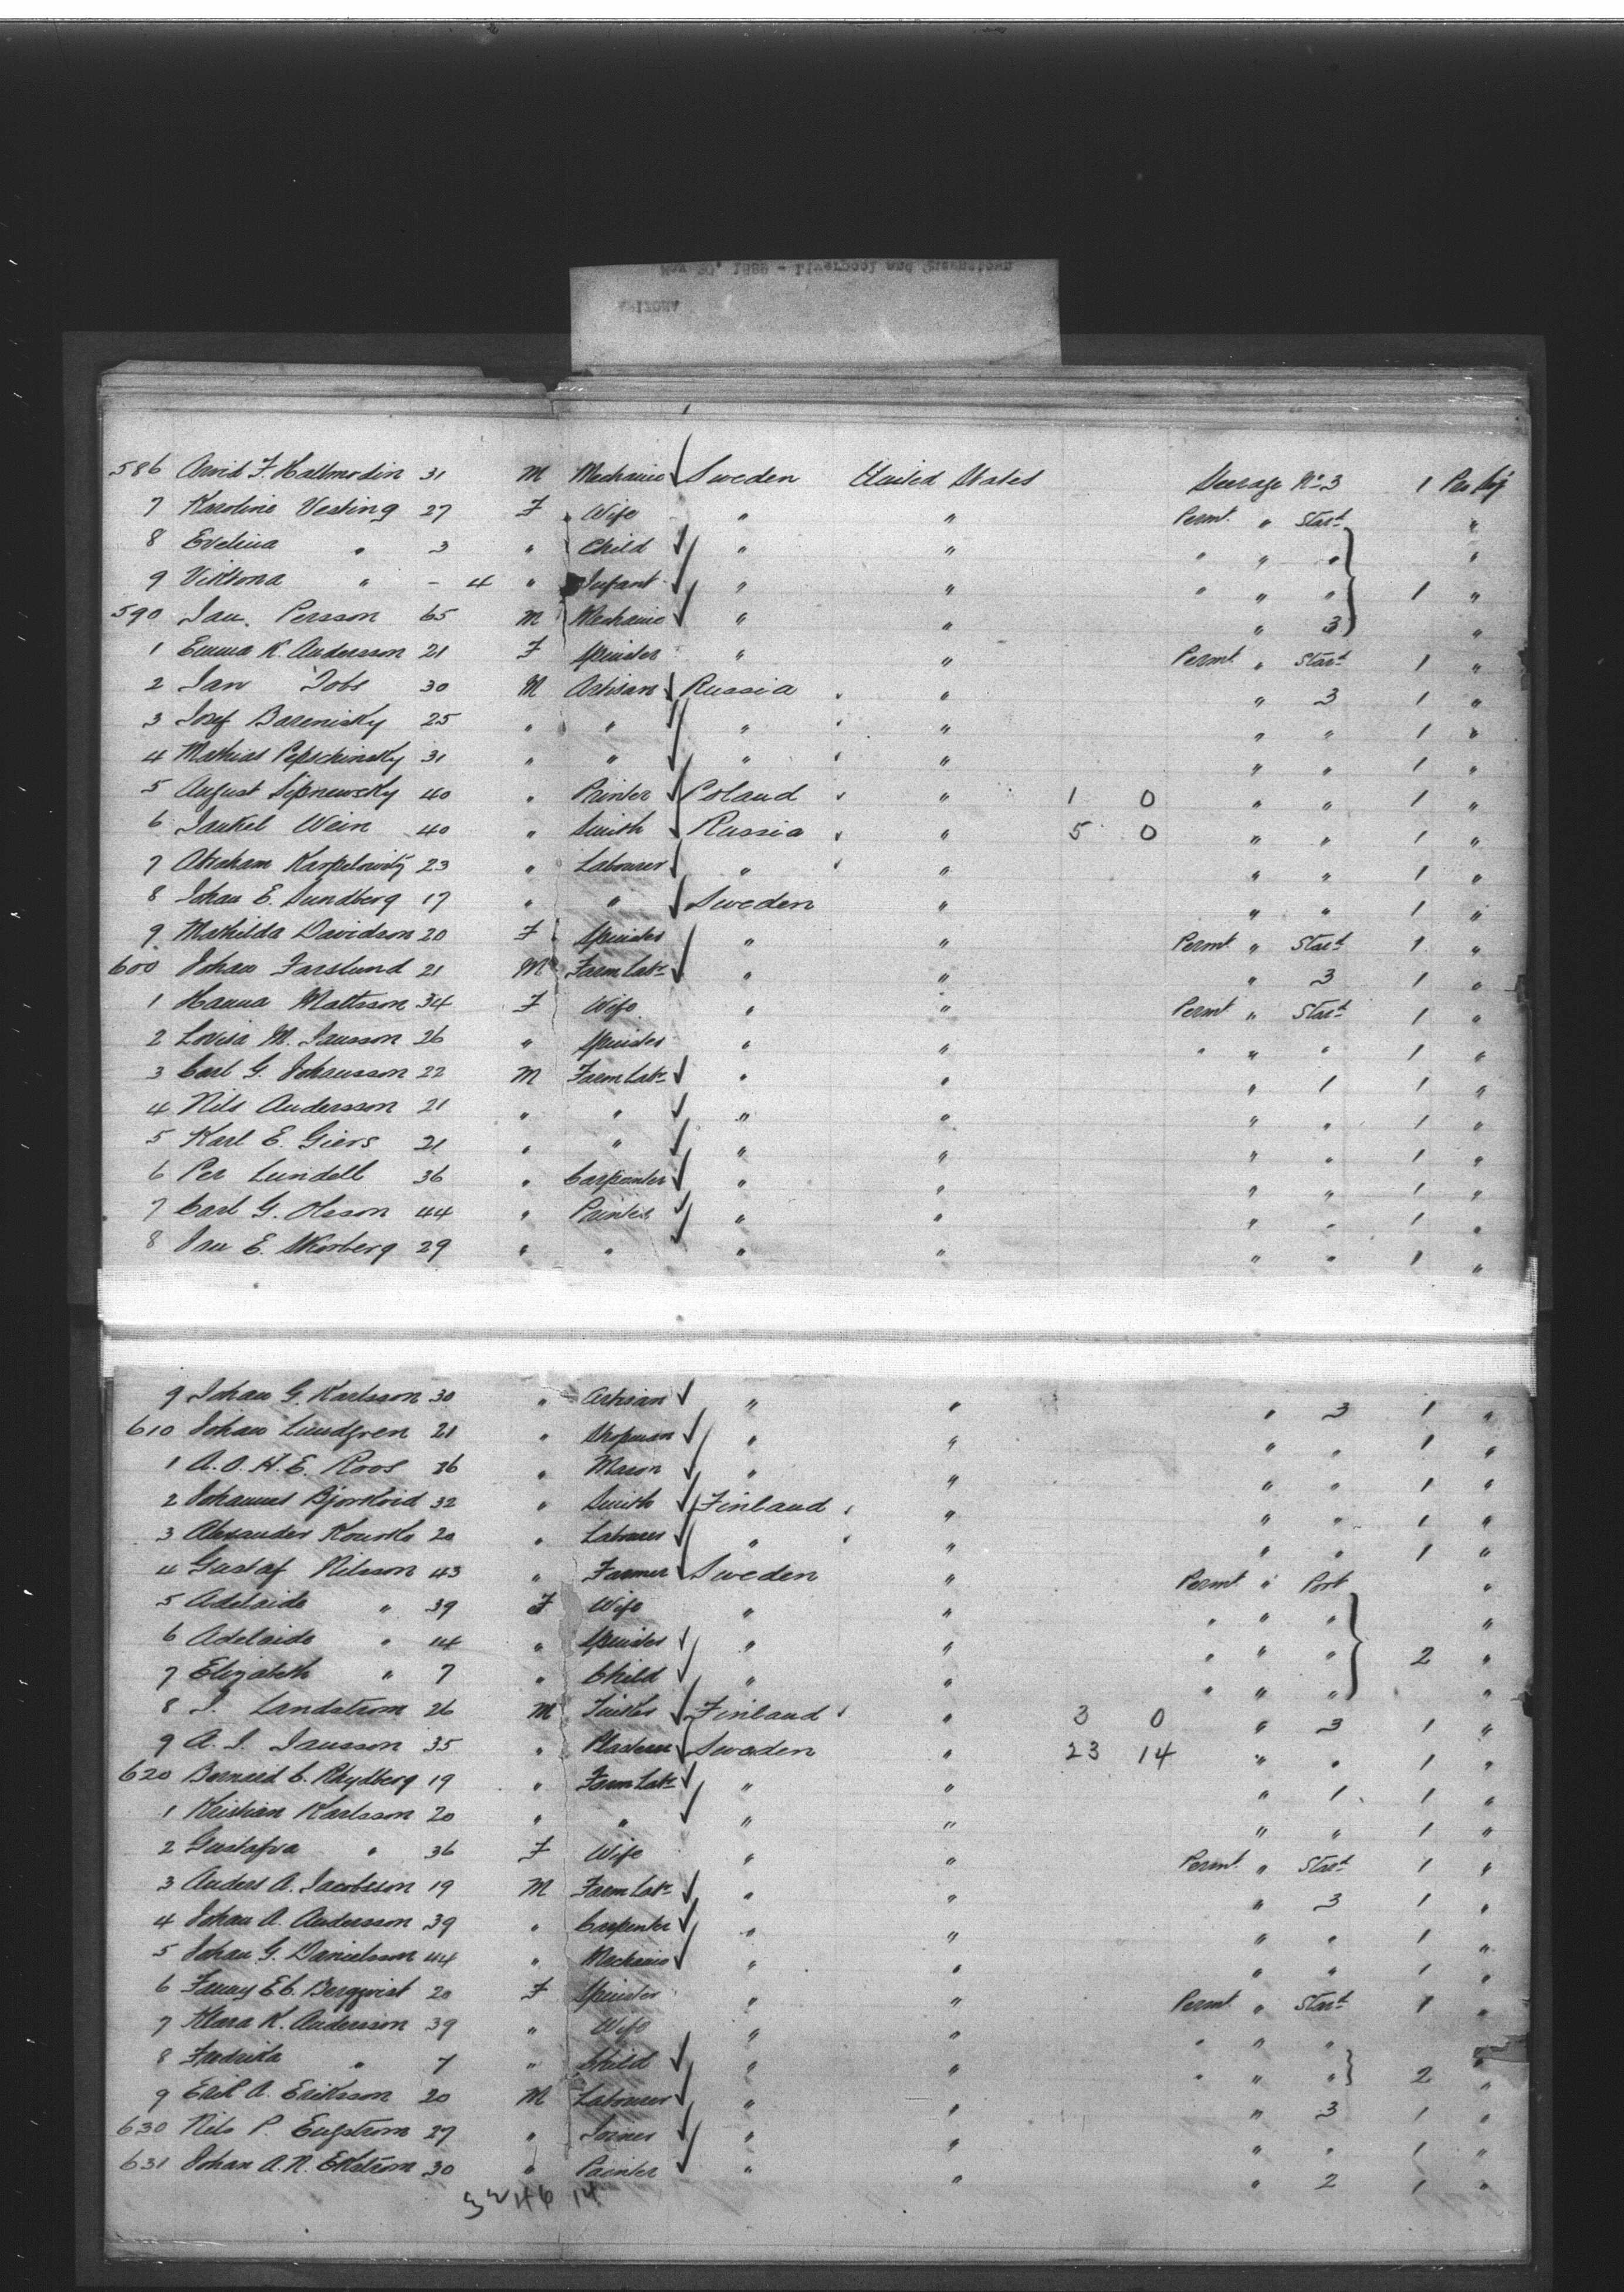 586 Arvid F. Hallmodin 31 M Mechanic Sweden United States Steerage No 3 1 Pkg
7 Karolina Vesting 27 F Wife " " Permt. " Star'd "
8 Evelina " 3 " Child " " " " " "
9 Viktoria " - 4 " Infant " " " " " 1 "
590 Jan. Persson 65 M Mechanic " " " 3 "
1 Emma K. Andersson 21 F Spinster " " Permt. " Star'd 1 "
2 Jan Tobs 30 M Artisan Russia " " 3 1 "
3 Josef 25 " " " " " " 1 "
4 Mathias 31 " " " " " " 1 "
5 August 40 " Printer Poland " 1 0 " " 1 "
6 Jankel Wein 40 " Smith Russia " 5 0 " " 1 "
7 Abraham Karpelowitz 23 " Labourer " " " " 1 "
8 Johan E. Sundberg 17 " " Sweden " " " 1 "
9 Mathilda Davidson 20 F Spinster " " Permt " Star'd 1 "
600 Johan Farslund 21 M Farm Labr " " " 3 1 "
1 Hanna Mattsson 34 F Wife " " Permt " Star'd 1 "
2 Lovisa M. Jansson 26 " Spinster " " " " " 1 "
3 Carl G. Johansson 22 M Farm Labr " " " 1 1 "
4 Nils Andersson 21 " " " " " " 1 "
5 Karl E. Giers 21 " " " " " " 1 "
6 Per Lundell 36 " Carpenter " " " " 1 "
7 Carl G. Olsson 44 " " " " " 1 "
8 Jan E. Skorberg 29 " " " " " " 1 "
9 Johan G. Karlsson 30 " Artisan " " " 3 1 "
610 Johan Lundgren 21 " Shopman " " " " 1 "
1 A. O. H. E. Roos 36 " Mason " " " " 1 "
2 Johannes 32 " Smith Finland " " " 1 "
3 Alexander 20 " Labourer " " " " 1 "
4 Gustaf Nilsson 43 " Farmer Sweden " Permt " Port "
5 Adelaide " 39 F Wife " " " " " "
6 Adelaide " 14 " Spinster " " " " " 2 "
7 Elizabeth " 7 " Child " " " " " "
8 J. Landstrom 26 M Finland " 3 0 " 3 1 "
9 A. J. Jansson 35 " Plasterer Sweden " 23 14 " " 1 "
620 Bernard C. Rhydberg 19 " Farm Labr " " " 1 1 "
1 Kristian Karlsson 20 " " " " " " 1 "
2 Gustafva " 36 F Wife " " Permt. " Star'd 1 "
3 Anders A. Jacobsson 19 M Farm Labr " " " 3 1 "
4 Johan A. Andersson 39 " Carpenter " " " " 1 "
5 Johan G. Danielsson 44 " Mechanic " " " " 1 "
6 Fanny E C. Bergqvist 20 F Spinster " " Permt. " Star'd 1 "
7 Klara K. Andersson 39 " Wife " " " " "
8 Fredrika " 7 " Child " " " " " 2 "
9 Erik A. Eriksson 20 M Labourer " " " 3 1 "
630 Nils P. Engstrom 27 " Joiner " " " " 1 "
631 Johan A. N. Ekstrom 30 " Painter " " " 2 1 "